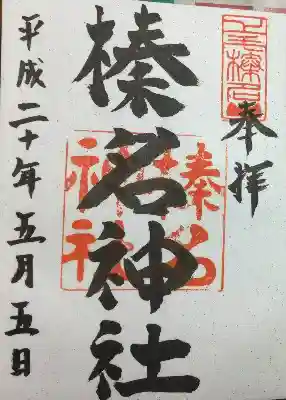 奉拝
榛名神社
平成二十年五月五日
榛名
神社